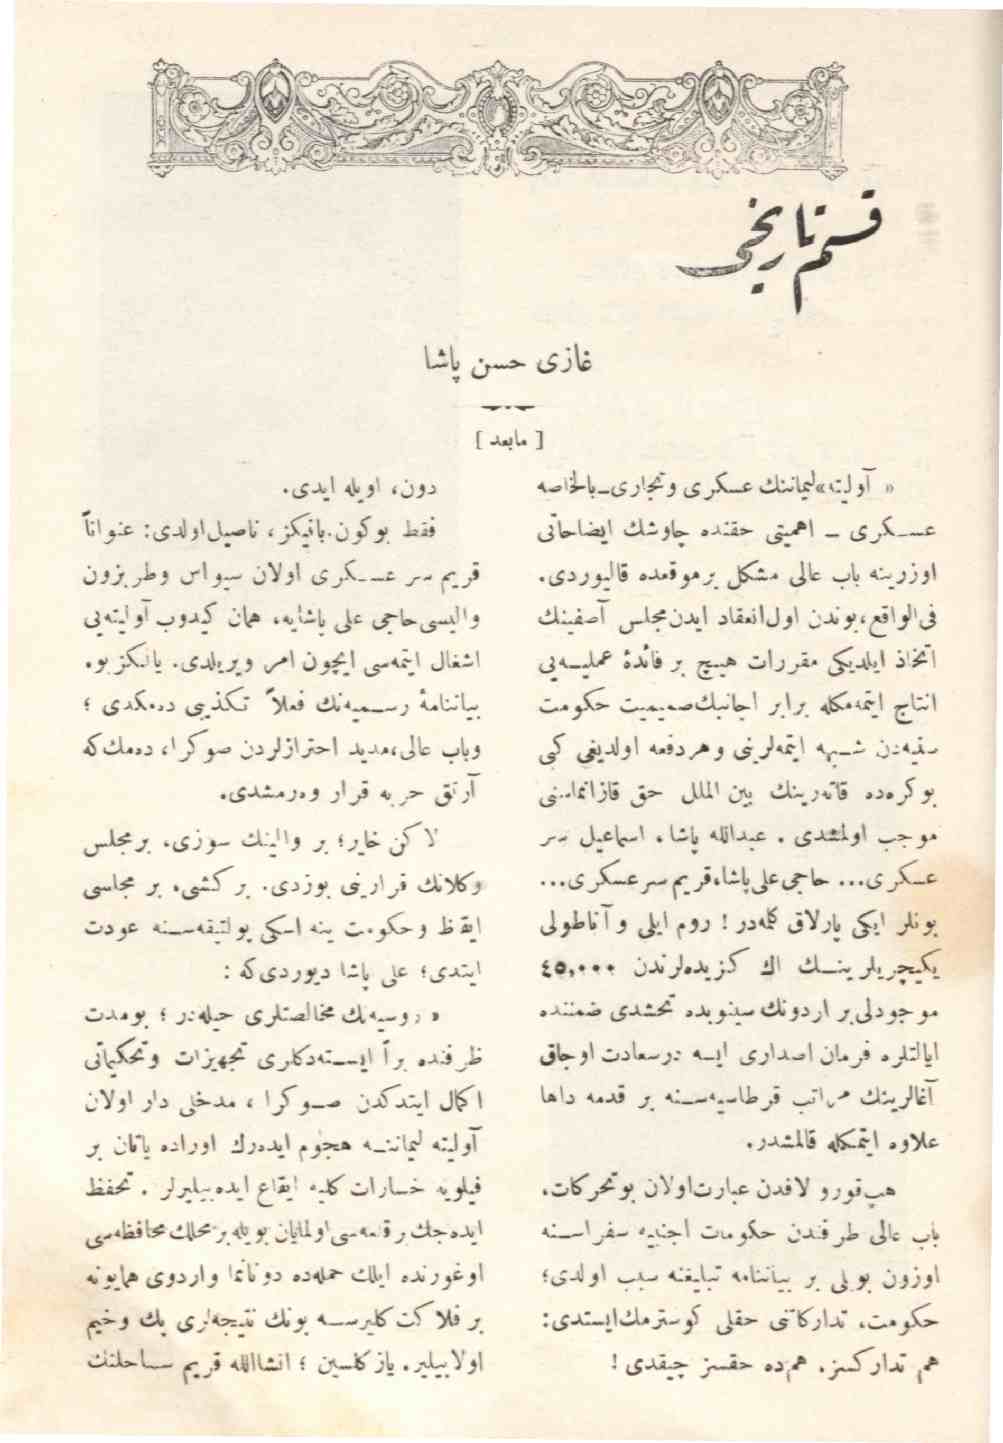 قسم تاريخى
غازى حسن پاشا
[ مابعد ]
« آوليته » ليماننك عسكرى و تجارى ــ بالخاصه
عسـكرى ــ اهميتى حقنده چاوشك ايضاحاتى
اوزرينه باب عالى مشكل برموقعده قاليوردى.
فى الواقع، بوندن اول انعقاد ايدن مجلس آصفينك
اتخاذ ايلديكى مقررات هيچ بر فائدهٔ عمليـه يى
انتاج ايتمه مكله برابر اجانبك صميميت حكومت
سنيه دن شـبهه ايتمه لرينى و هر دفعه اولديغى كبى
بو كره ده قاته رينك بين الملل حق قازانماسنى
موجب اولمشدى . عبدالله پاشا، اسماعيل سر
عسكرى... حاجى على پاشا، قريم سر عسكرى...
بونلر ايكى پارلاق كله در ! روم ايلى و آناطولى
يكيچريلرينـك اك كزيده لرندن ٤٥,٠٠٠
موجودلى بر اردونك سينوبده تحشدى ضمننده
ايالتلره فرمان اصدارى ايسه درسعادت اوجاق
آغالرينك مراتب قرطاسيه سـنه بر قدمه داها
علاوه ايتمكله قالمشدر.
هپ قورو لافدن عبارت اولان بو تحركات،
باب عالى طرفندن حكومات اجنبيه سفراسـنه
اوزون بويلى بر بياننامه تبليغنه سبب اولدى؛
حكومت، تداركاتنى حقلى كوسترمك ايستدى:
هم تداركسز. هم ده حقسز چيقدى !
دون، اويله ايدى.
فقط بوكون. باقيكز، ناصيل اولدى: عنواناً
قريم سر عسـكرى اولان سيواس و طربزون
واليسى حاجى على پاشايه، همان كيدوب آوليته يى
اشغال ايتمه سى ايچون امر ويريلدى. يالكز بو،
بياننامهٔ رسـميه نك فعلاً تكذيبى ديمكدى ؛
و باب عالى، مديد احترازلردن صوكرا، ده مك كه
آرتق حربه قرار ويرمشدى.
لاكن خاير؛ بر والينك سوزى، بر مجلس
وكلانك قرارينى بوزدى. بر كشى، بر مجلسى
ايقاظ و حكومت ينه اسكى پولتيقه سـنه عودت
ايتدى؛ على پاشا ديوردى كه :
« روسيه نك مخالصتلرى حيله در ؛ بو مدت
ظرفنده براً ايسـته دكلرى تجهيزات و تحكيماتى
اكمال ايتدكدن صـوكرا ، مدخلى دار اولان
آوليته ليماننـه هجوم ايده رك اوراده ياتان بر
فيلويه خسارات كليه ايقاع ايده بيليرلر . تحفظ
ايده جك بر قلعه سى اولمايان بويله بر محلك محافظه سى
اوغورنده ايلك حمله ده دونانما و اردوى همايونه
بر فلاكت كليرسـه بونك نتيجه لرى پك وخيم
اولابيلير. ياز كلسين ؛ انشاالله قريم سـاحلنك